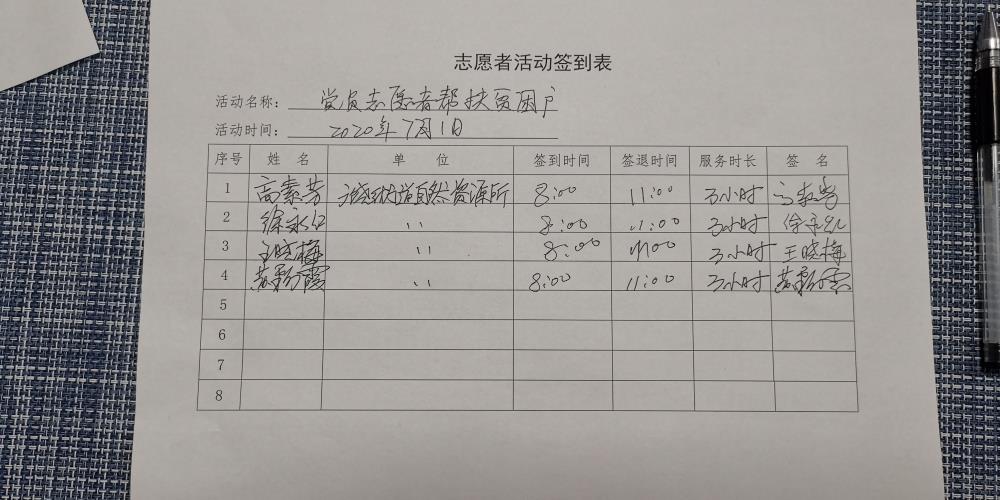 志愿者活动签到表
活动名称: 党员志愿者帮扶贫困户
活动时间: 2020年7月1日
序号 姓 名 单 位 签到时间 签退时间 服务时长 签 名
1 高素芳 街道自然资源所 8:00 11:00 3小时
2 徐永 〃 8:00 11:00 3小时 徐永
3 王晓梅 〃 8:00 11:00 3小时 王晓梅
4 苏彩霞 〃 8:00 11:00 3小时 苏彩霞
5
6
7
8